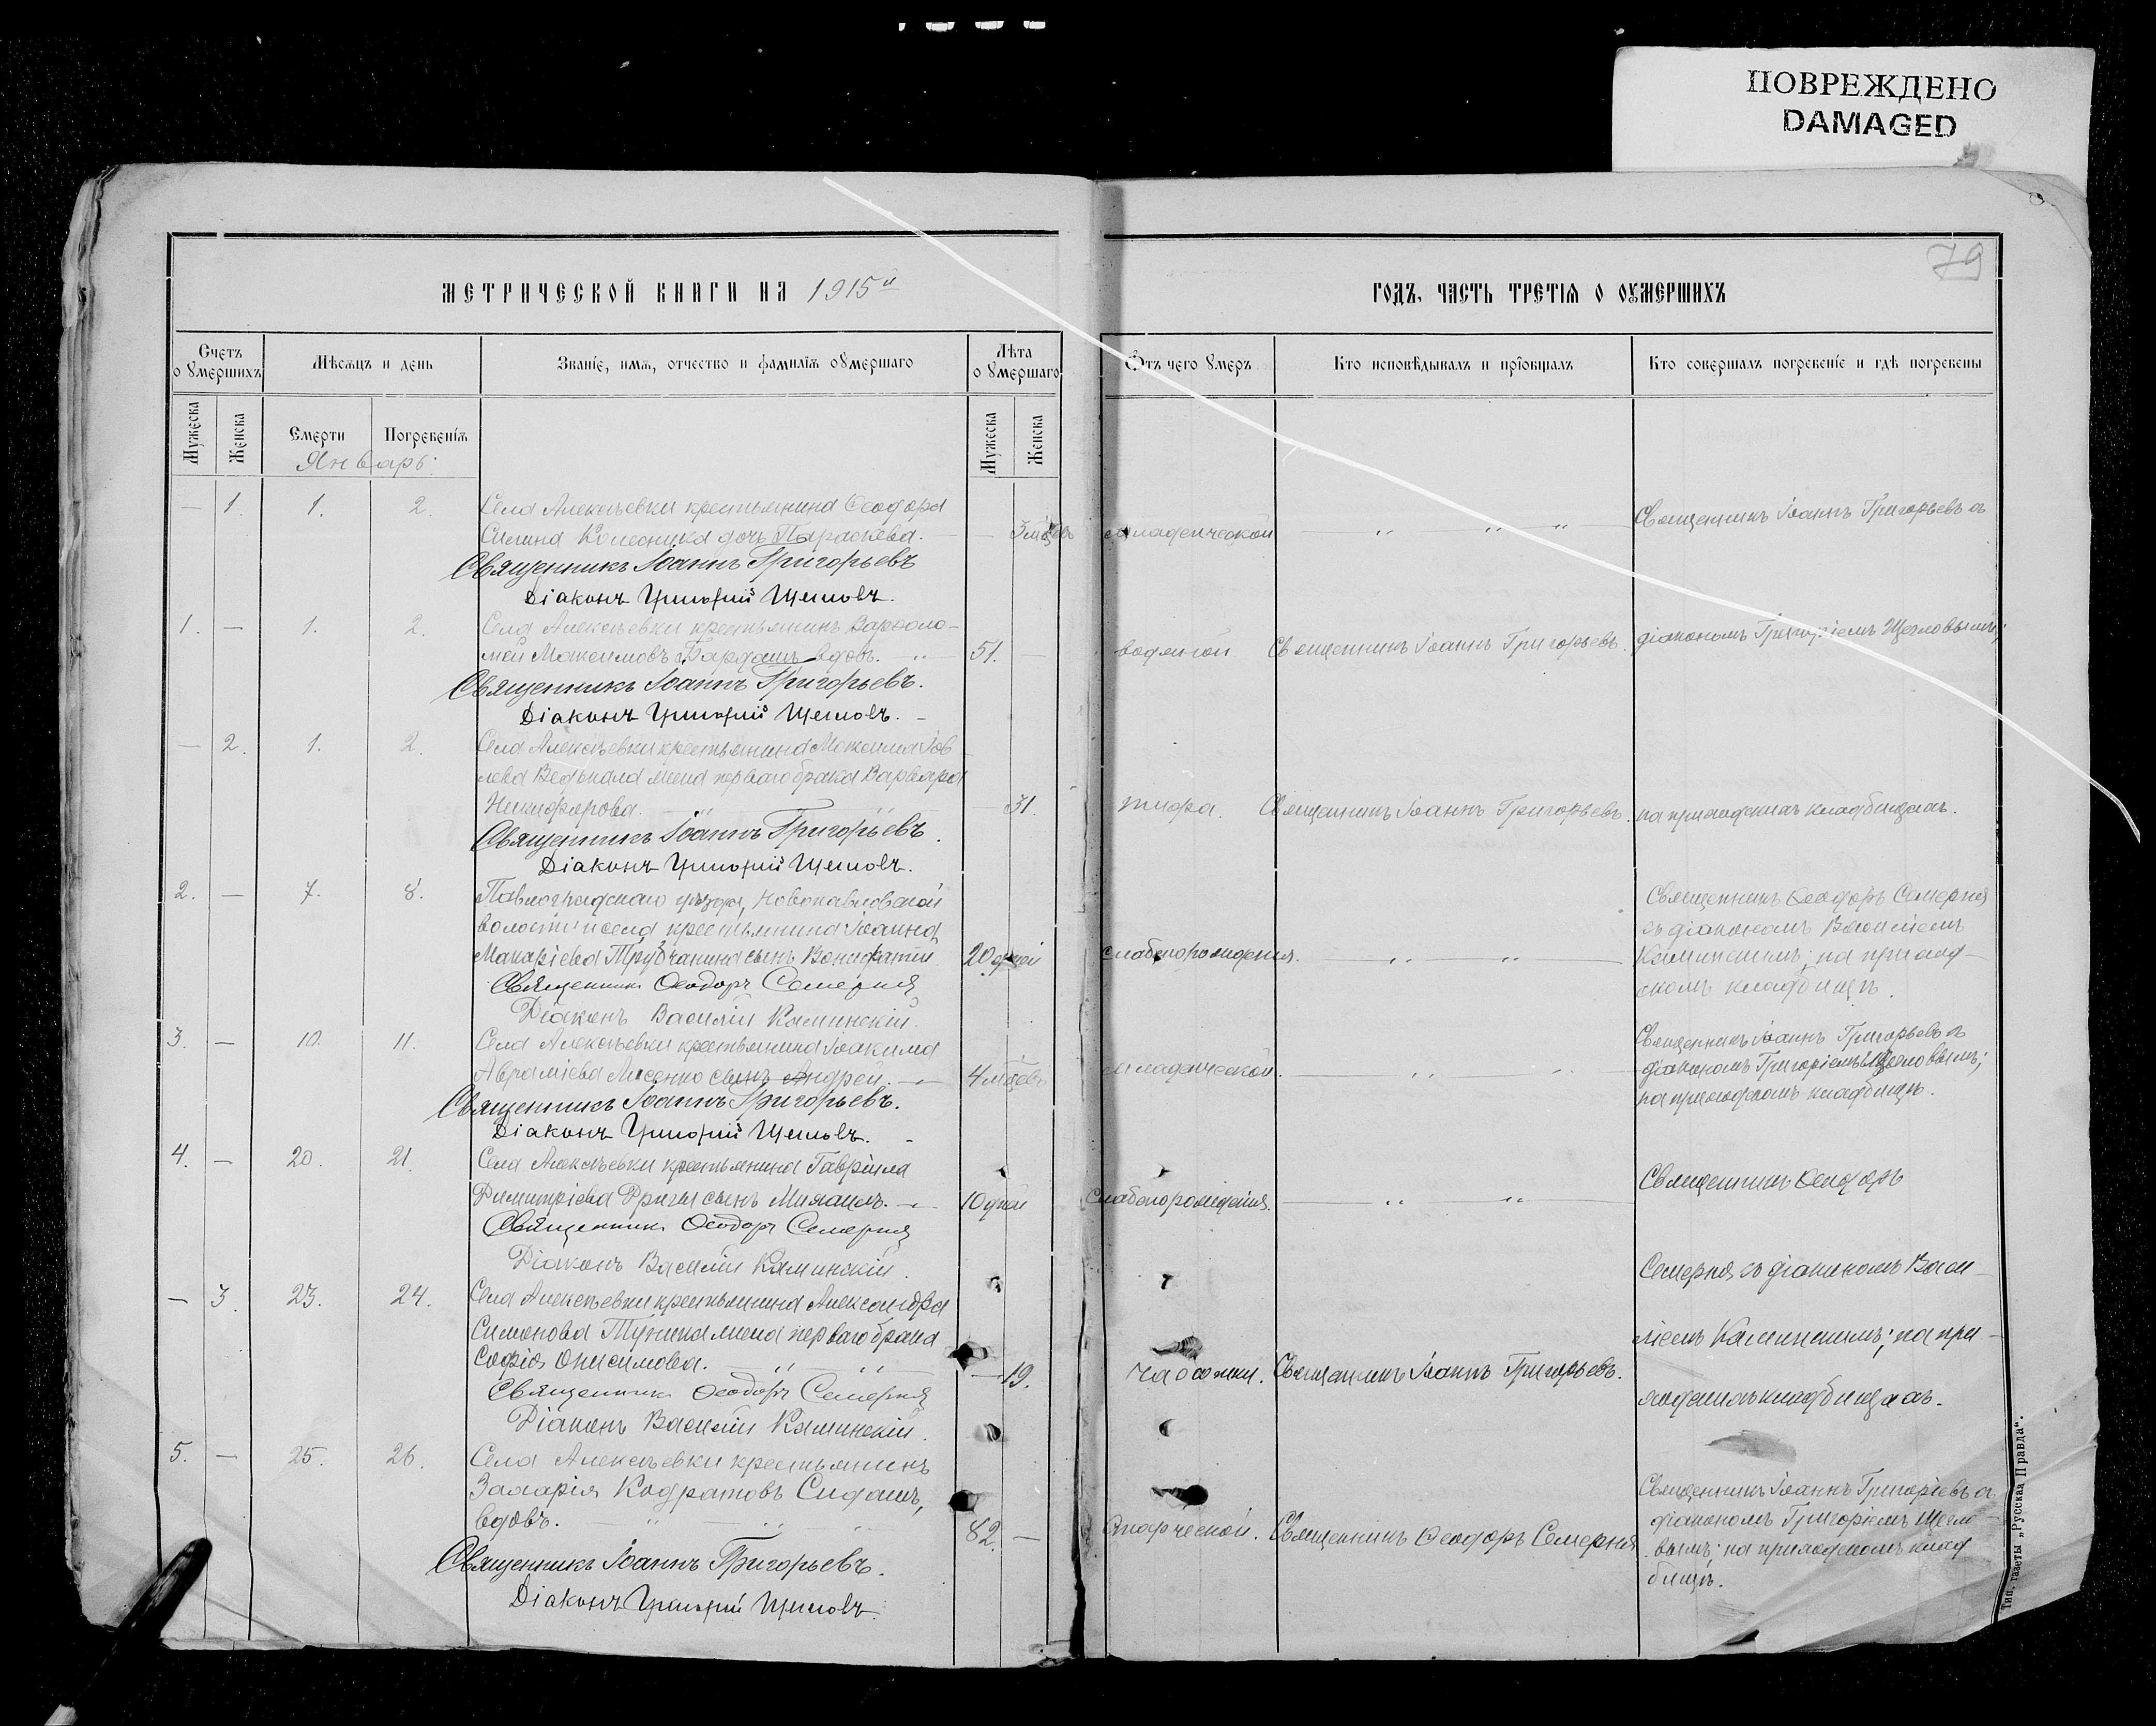 ПОВРЕЖДЕНО
DAMAGED
79
МЕТРИЧЕСКОЙ КНИГИ НА 1915й
ГОДЪ, ЧАСТЬ ТРЕТІЯ О ОУМЕРШИХЪ
Счетъ о умершихъ
Мѣсяцъ и день
Званіе, имя, отчество и фамилія оумершаго
Лѣта о умершаго
Отъ чего умеръ
Кто исповѣдывалъ и пріобщалъ
Кто совершалъ погребеніе и гдѣ погребены
Мужеска
Женска
Смерти
Погребенія
Мужеска
Женска
Январь.
— 1. 1. 2. Села Алексѣевки крестьянина Ѳеодора
Силина Колесника дочь Параскева. — 3 мѣсяц. младенческой — „ „ „ — Священникъ Іоаннъ Григорьевъ съ
Священникъ Іоаннъ Григорьевъ
Діаконъ Григорій Щегловъ.
1. — 1. 2. Села Алексѣевки крестьянинъ Варѳоло-
мей Максимовъ Бардашъ вдовъ. — „ 51. — водяной Священникъ Іоаннъ Григорьевъ. діакономъ Григоріемъ Щегловымъ;
Священникъ Іоаннъ Григорьевъ.
Діаконъ Григорій Щегловъ. —
— 2. 1. 2. Села Алексѣевки крестьянина Максима Іов-
лева жена перваго брака Варвара
Никифорова. — „ — „ — 31. тифа. Священникъ Іоаннъ Григорьевъ. на приходскихъ кладбищахъ.
Священникъ Іоаннъ Григорьевъ.
Діаконъ Григорій Щегловъ.
2. — 7. 8. Павлоградскаго уѣзда, Новопавловской
волости и села крестьянина Іоанна
Макаріева Трубчанина сынъ Вонифатій 20 дней слабопорожденія. — „ — „ —
Священникъ Ѳеодоръ Семерня
съ діакономъ Василіемъ
Каминскимъ; на приход-
скомъ кладбищѣ.
Священникъ Ѳеодоръ Семерня
Діаконъ Василій Каминскій.
3. — 10. 11. Села Алексѣевки крестьянина Іоакима
Авраміева Лисенко сынъ Андрей. — 4 мѣсяц. младенческой. — „ „ —
Священникъ Іоаннъ Григорьевъ съ
діакономъ Григоріемъ Щегловымъ;
на приходскомъ кладбищѣ.
Священникъ Іоаннъ Григорьевъ.
Діаконъ Григорій Щегловъ. —
4. — 20. 21. Села Алексѣевки крестьянина Гавріила
Димитріева сынъ Михаилъ. — 10 дней слабопорожденія. — „ „ —
Священникъ Ѳеодоръ
Священникъ Ѳеодоръ Семерня
Діаконъ Василій Каминскій.
Семерня съ діакономъ Васи-
— 3. 23. 24. Села Алексѣевки крестьянина Александра
Симонова жена перваго брака
Софія Онисимова. — „ — „ — 19. чахотки. Священникъ Іоаннъ Григорьевъ.
ліемъ Каминскимъ; на при-
ходскихъ кладбищахъ.
Священникъ Ѳеодоръ Семерня
Діаконъ Василій Каминскій.
5. — 25. 26. Села Алексѣевки крестьянинъ
Захарія Кодратовъ Сидашъ,
вдовъ. „ — „ — „ 82. — старческой. Священникъ Ѳеодоръ Семерня
Священникъ Іоаннъ Григорьевъ съ
діакономъ Григоріемъ Щегло-
вымъ; на приходскомъ клад-
бищѣ.
Священникъ Іоаннъ Григорьевъ.
Діаконъ Григорій Щегловъ.
Тип. газеты „Русская Правда“.